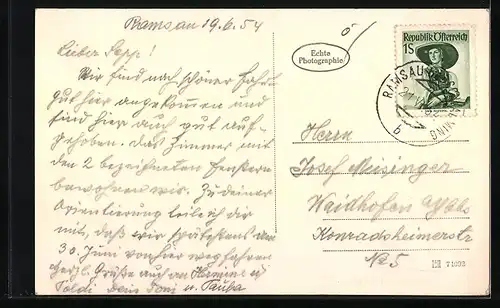 Ramsau 19.6.54
Lieber Sepp!
Wir sind nach schöner Fahrt
gut hier angekommen und
sind hier auch gut auf-
gehoben. Das Zimmer mit
den 2 bezeichneten Fenstern
bewohnen wir. Zu deiner
Orientierung teile ich dir
mit, daß wir spätestens am
30. Juni von hier wegfahren
herzl. Grüße auch an Hermine u
Poldi Dein Toni u.
Echte
Photographie
Republik Österreich
1S
RAMSAU
Herrn
Josef Meisinger
Waidhofen a/Ybbs
Konradsheimerstr
No 5
71093